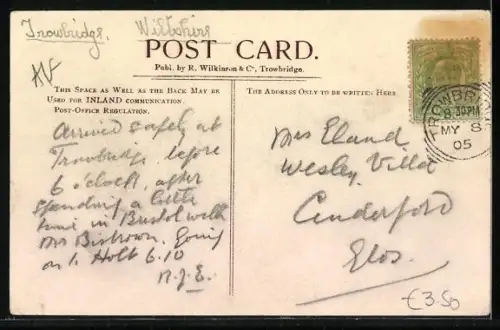 Trowbridge, Wiltshire
POST CARD.
Publ. by R. Wilkinson & Co, Trowbridge.
THIS SPACE AS WELL AS THE BACK MAY BE
USED FOR INLAND COMMUNICATION.
POST-OFFICE REGULATION.
THE ADDRESS ONLY TO BE WRITTEN HERE
TROWBRI
8.30PM
MY 8
05
Arrived safely at
Trowbridge before
6 o'clock, after
spending a little
time in Bristol with
Mrs Going
on to Holt 6.10
Mrs Eland
Wesley Villa
Cinderford
Glos.
€3.50